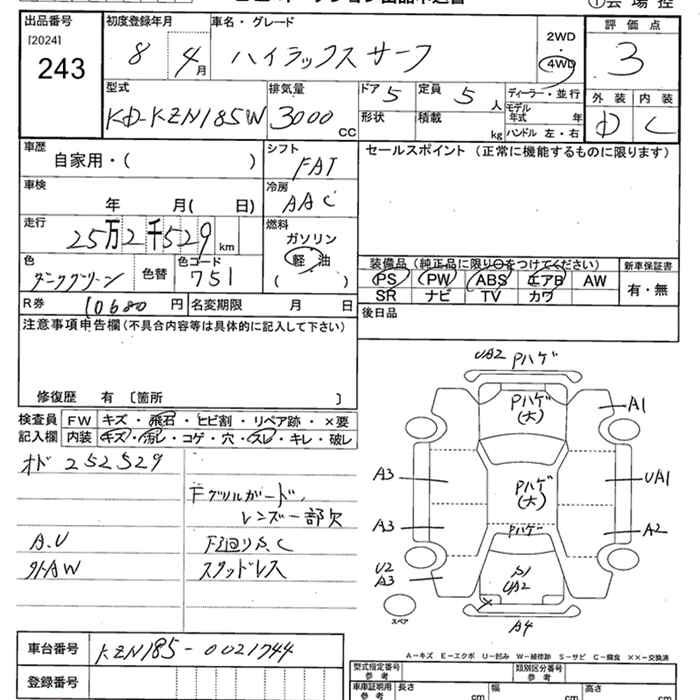 出品番号 初度登録年月 車名・グレード 評価点
[2024] 243
8年4月 ハイラックスサーフ 2WD・4WD 3
型式 排気量 ドア5 定員5人 ディーラー・並行 外装 内装
KD-KZN185W 3000cc 形状 積載 kg モデル年式 年 ハンドル 左・右 D C
車歴 シフト セールスポイント (正常に機能するものに限ります)
自家用・( ) FAT
車検 冷房
年 月( 日) AAC
走行 燃料
25万2千529km ガソリン
色 色替 色コード 軽油
ダークグリーン 751 ( )
装備品 (純正品に限り○をつけてください) 新車保証書
PS PW ABS エアB AW 有・無
SR ナビ TV カワ
R券 10680円 名変期限 月 日 後日品
注意事項申告欄(不具合内容等は具体的に記入して下さい)
修復歴 有 〔箇所 〕
検査員 FW キズ・飛石・ヒビ割・リペア跡・×要
記入欄 内装 キズ・汚レ・コゲ・穴・スレ・キレ・破レ
オド 252529
Fグリルガード、
レンズ一部欠
A.U 下回りS.C
外AW スタッドレス
UA2 Pハゲ
Pハゲ (大) A1
A3 Pハゲ (大) UA1
A3 Pハゲ A2
U2 A3 S1 UA2
スペア A4
A-キズ E-エクボ U-凹み W-補修跡 S-サビ C-腐食 ××-交換済
車台番号 KZN185-0021744
登録番号
型式指定番号 参考 類別区分番号 参考
車庫証明用 参考 長さ cm 幅 cm 高さ cm